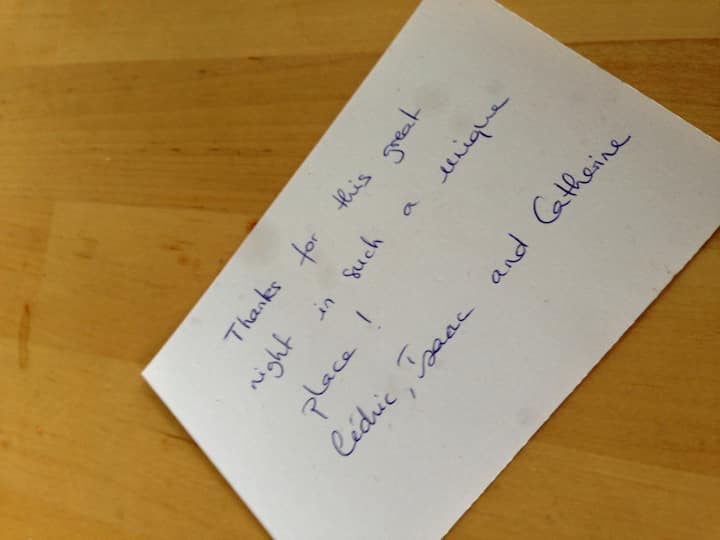 Thanks for this great
night in such a unique
place !
Cédric, Isaac and Catherine